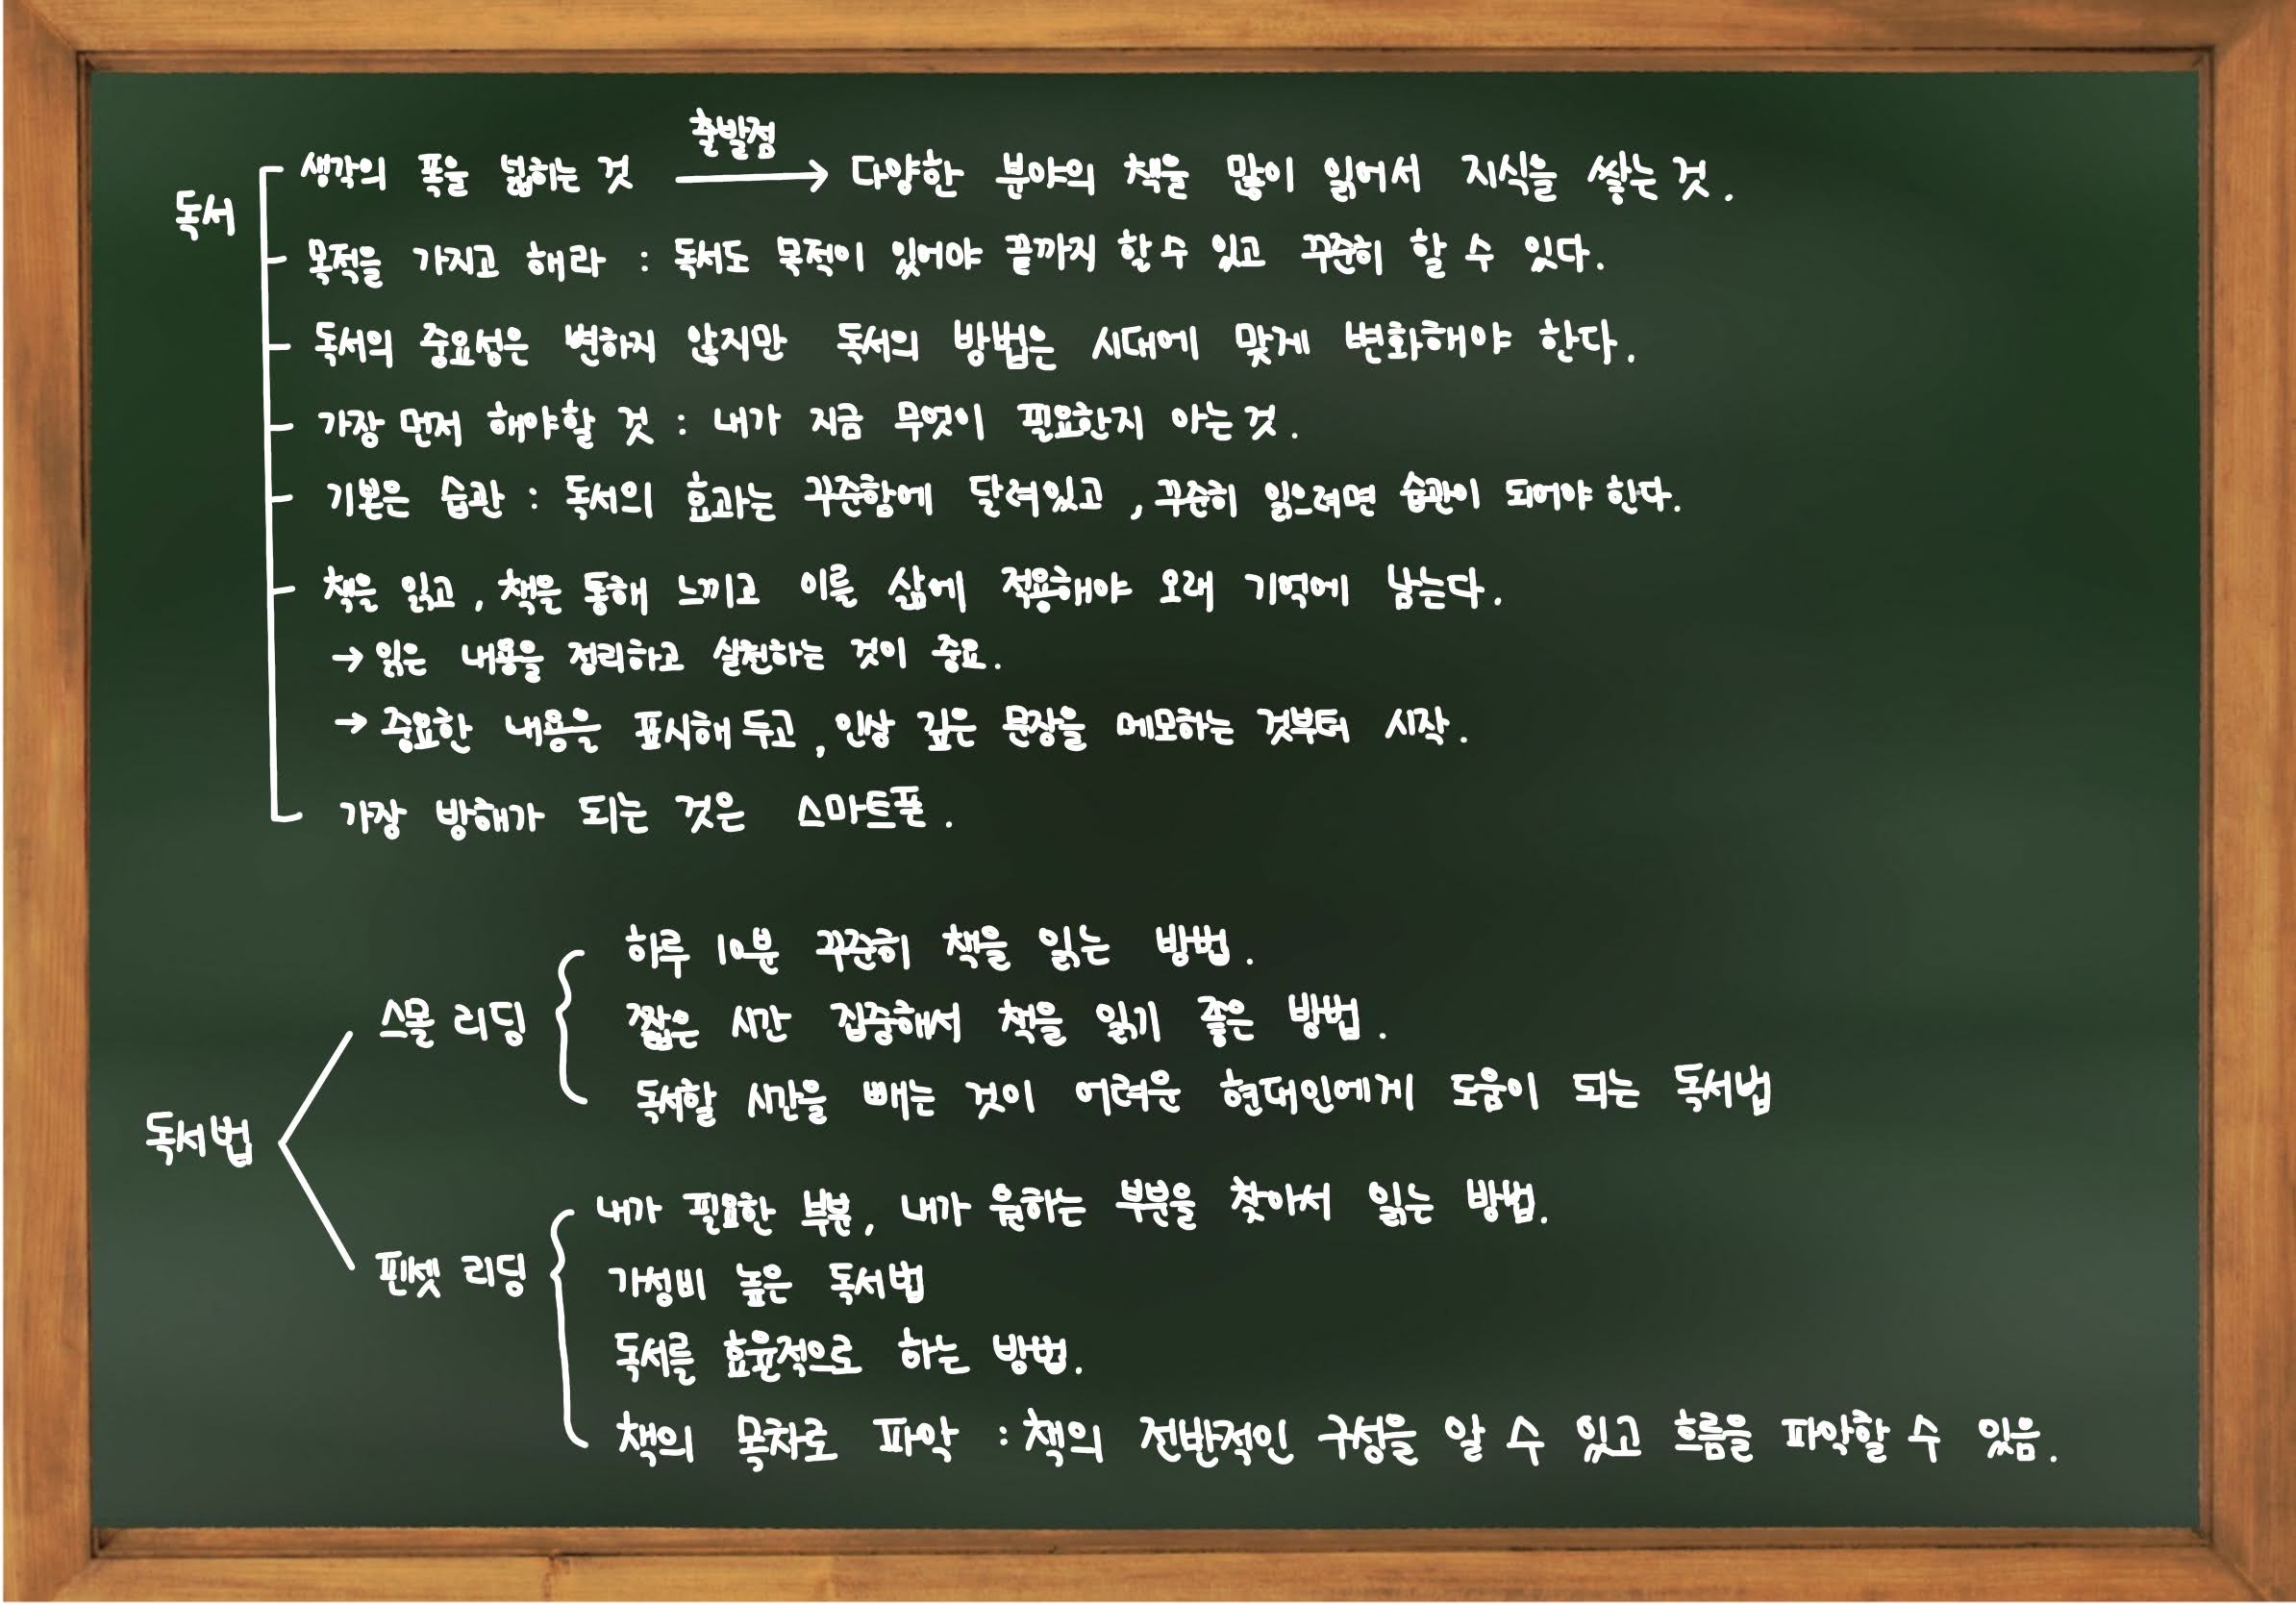 출발점
독서
생각의 폭을 넓히는 것 → 다양한 분야의 책을 많이 읽어서 지식을 쌓는 것.
목적을 가지고 해라 : 독서도 목적이 있어야 끝까지 할 수 있고 꾸준히 할 수 있다.
독서의 중요성은 변하지 않지만 독서의 방법은 시대에 맞게 변화해야 한다.
가장 먼저 해야할 것 : 내가 지금 무엇이 필요한지 아는 것.
기본은 습관 : 독서의 효과는 꾸준함에 달려있고, 꾸준히 읽으려면 습관이 되어야 한다.
책을 읽고, 책을 통해 느끼고 이를 삶에 적용해야 오래 기억에 남는다.
→ 읽은 내용을 정리하고 실천하는 것이 중요.
→ 중요한 내용을 표시해 두고, 인상 깊은 문장을 메모하는 것부터 시작.
가장 방해가 되는 것은 스마트폰.
독서법
스몰 리딩
하루 10분 꾸준히 책을 읽는 방법.
짧은 시간 집중해서 책을 읽기 좋은 방법.
독서할 시간을 빼는 것이 어려운 현대인에게 도움이 되는 독서법
핀셋 리딩
내가 필요한 부분, 내가 원하는 부분을 찾아서 읽는 방법.
가성비 높은 독서법
독서를 효율적으로 하는 방법.
책의 목차로 파악 : 책의 전반적인 구성을 알 수 있고 흐름을 파악할 수 있음.